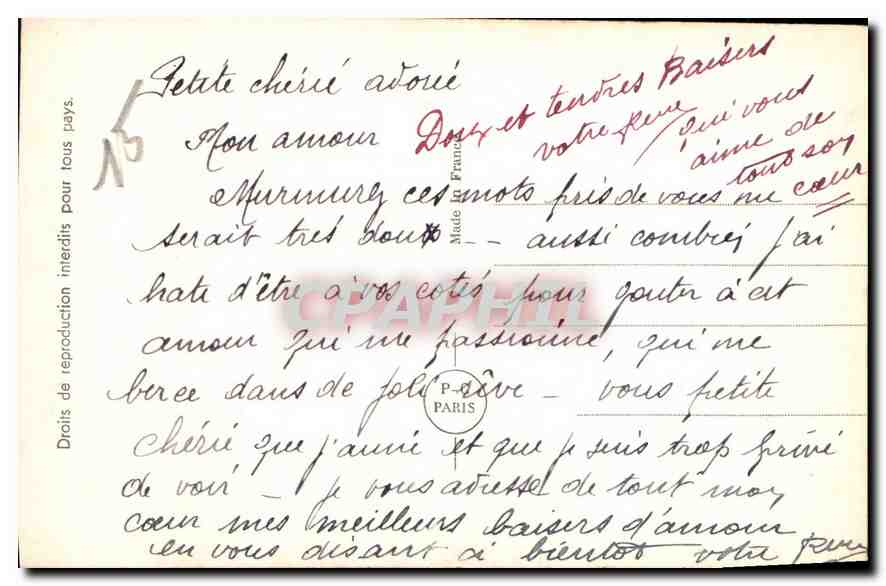 Petite chérie adorée
Mon amour
Murmurez ces mots près de vous me
serait très doux -- aussi combien j'ai
hate d'être à vos cotés pour gouter à cet
amour qui me passionne, qui me
berce dans de joli rêve - vous petite
chérie que j'aime et que je suis trop privé
de voir - je vous adresse de tout mon
cœur mes meilleurs baisers d'amour
en vous disant à bientot votre
Doux et tendres Baisers
votre
qui vous
aime de
tout son
cœur
15
Droits de reproduction interdits pour tous pays.
Made in France
P-C
PARIS
CPAPHIL